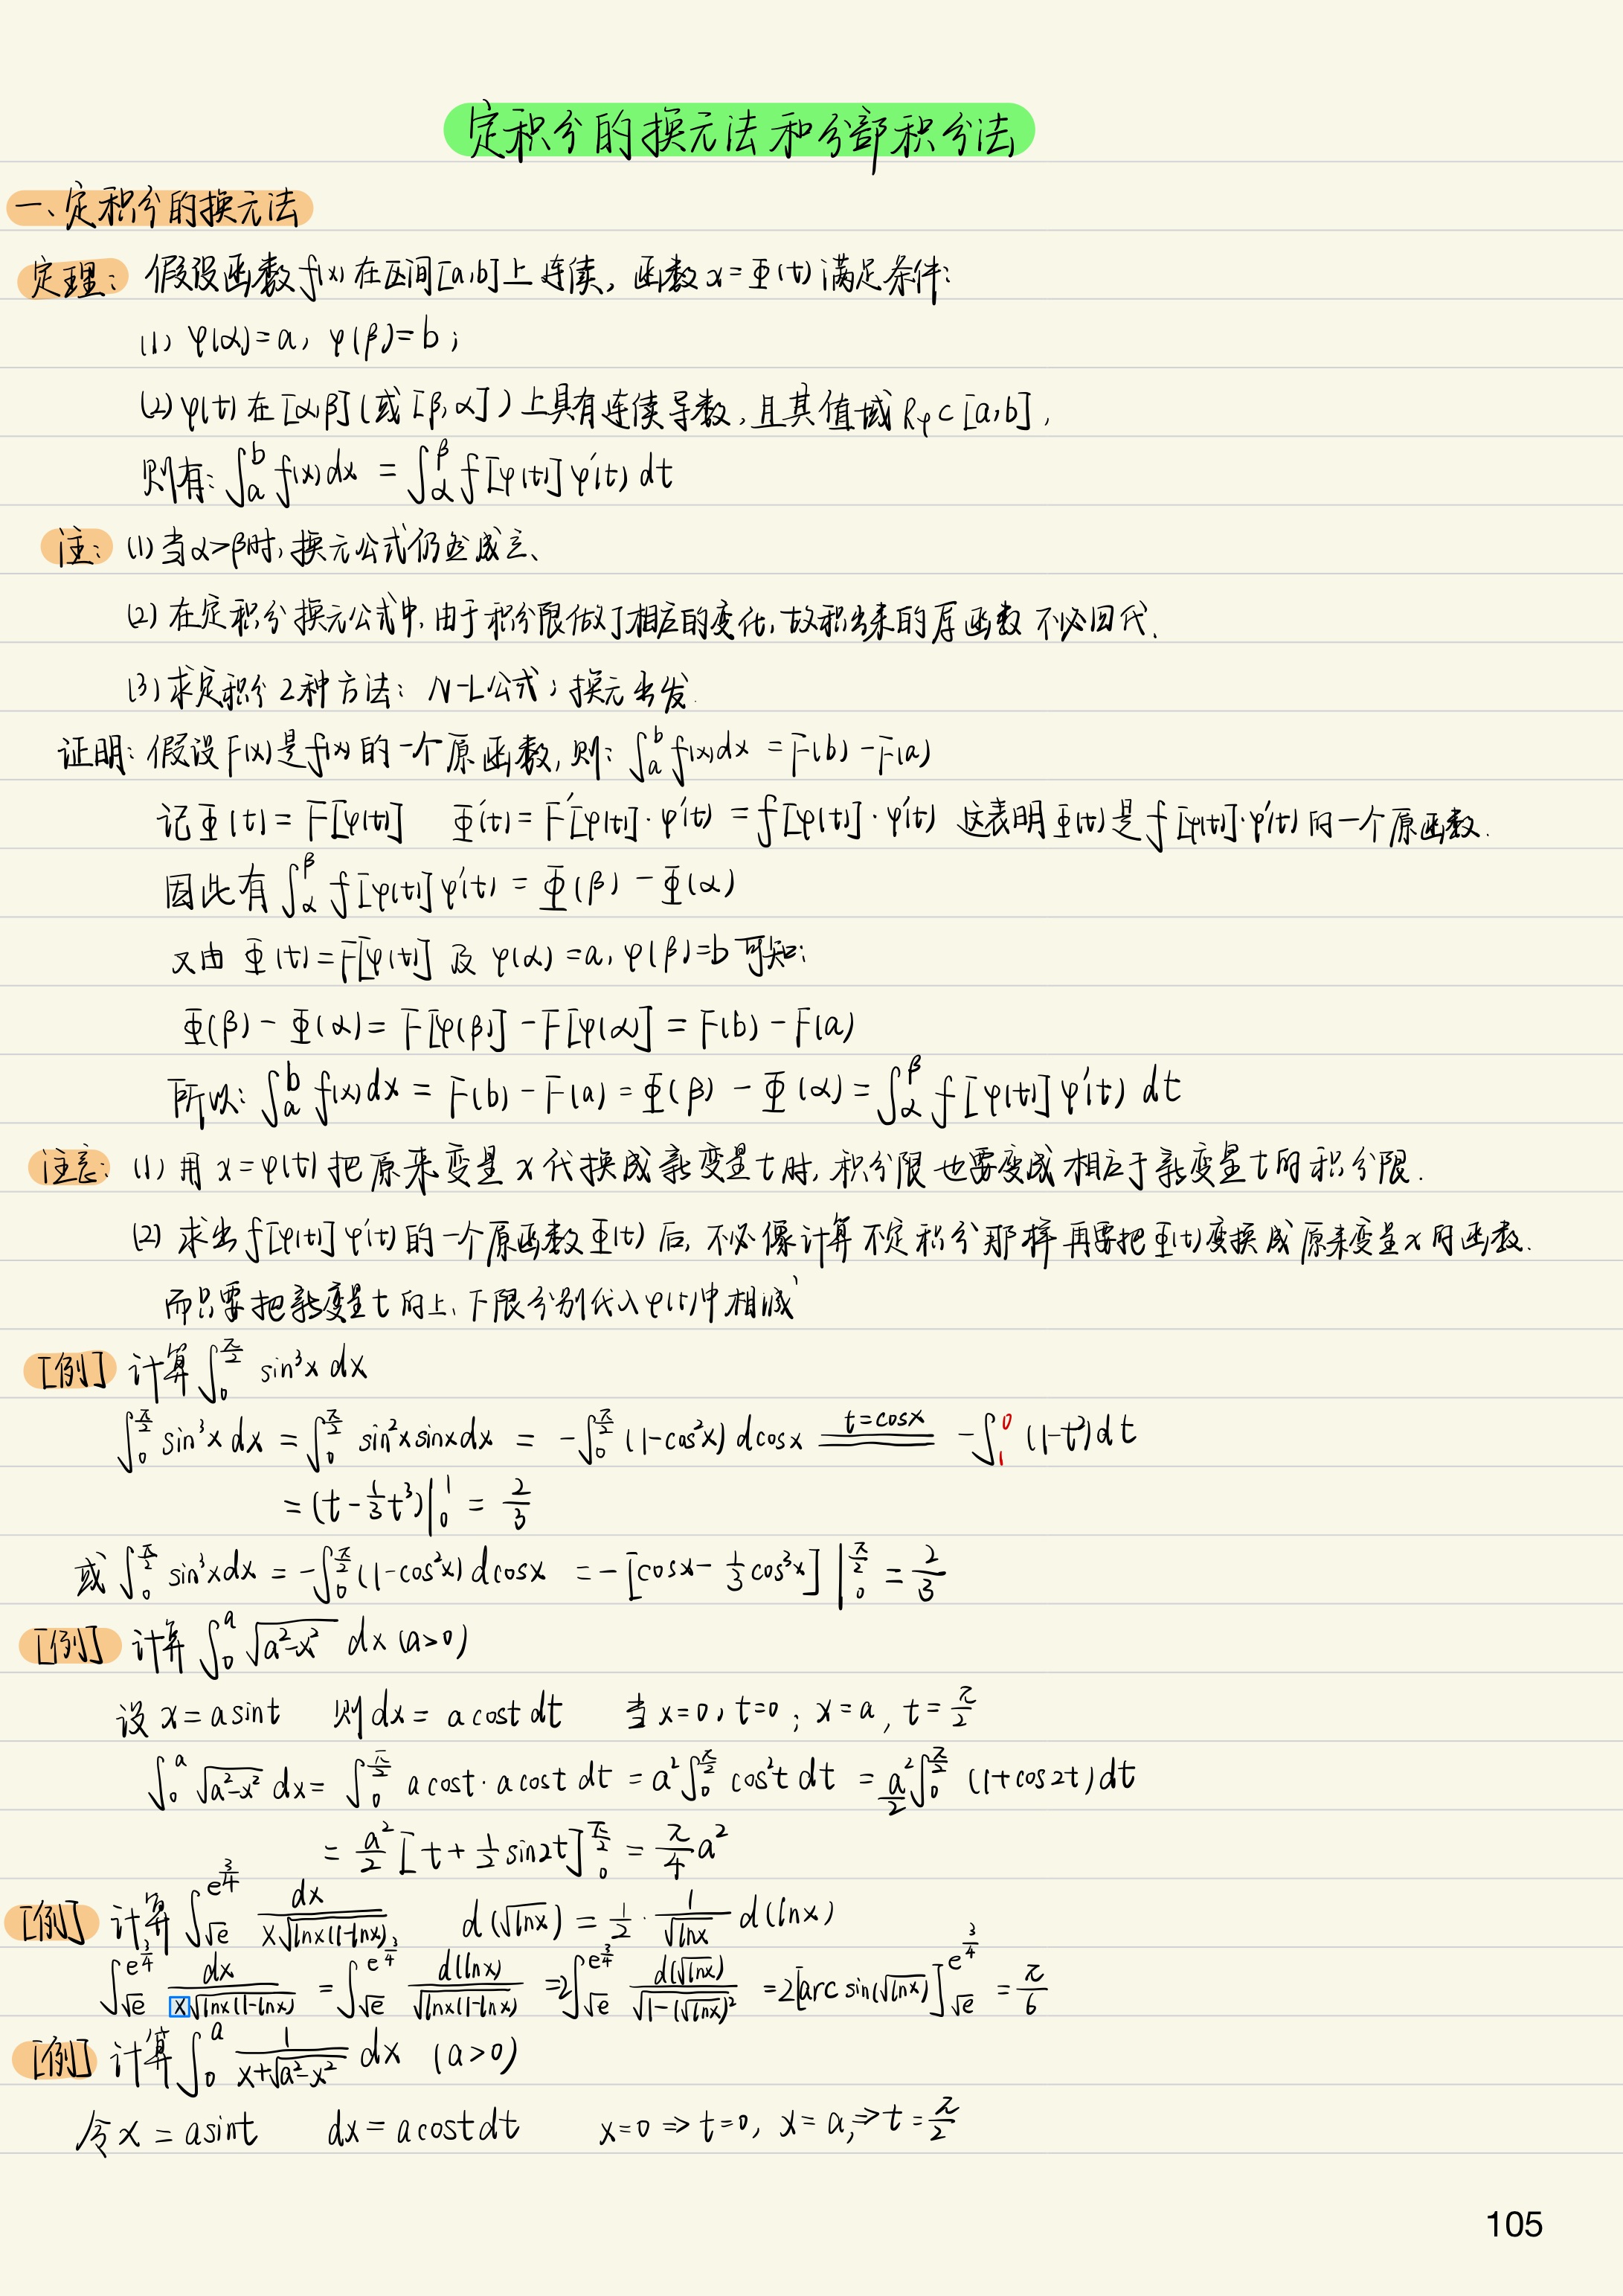 定积分的换元法和分部积分法
一、定积分的换元法
定理: 假设函数f(x)在区间[a,b]上连续, 函数x=Φ(t)满足条件:
(1) φ(α)=a, φ(β)=b;
(2) φ(t)在[α,β](或[β,α])上具有连续导数,且其值域Rφ⊂[a,b],
则有: ∫_a^b f(x)dx = ∫_α^β f[φ(t)]φ'(t) dt
注: (1) 当α>β时,换元公式仍然成立、
(2) 在定积分换元公式中,由于积分限做了相应的变化,故积出来的原函数不必回代、
(3) 求定积分2种方法: N-L公式; 换元出发.
证明: 假设F(x)是f(x)的一个原函数,则: ∫_a^b f(x)dx = F(b)-F(a)
记Φ(t)=F[φ(t)] Φ'(t)=F'[φ(t)]·φ'(t) =f[φ(t)]·φ'(t) 这表明Φ(t)是f[φ(t)]·φ'(t)的一个原函数.
因此有∫_α^β f[φ(t)]φ'(t) = Φ(β)-Φ(α)
又由 Φ(t)=F[φ(t)] 及 φ(α)=a, φ(β)=b可知:
Φ(β)-Φ(α)= F[φ(β)]-F[φ(α)] = F(b)-F(a)
所以: ∫_a^b f(x)dx = F(b)-F(a) = Φ(β)-Φ(α) = ∫_α^β f[φ(t)]φ'(t) dt
注意: (1) 用x=φ(t)把原来变量x代换成新变量t时,积分限也要变成相应于新变量t的积分限.
(2) 求出f[φ(t)]φ'(t)的一个原函数Φ(t)后,不必像计算不定积分那样再要把Φ(t)变换成原来变量x的函数.
而只要把新变量t的上、下限分别代入φ(t)中相减
[例] 计算∫_0^{π/2} sin³x dx
∫_0^{π/2} sin³x dx = ∫_0^{π/2} sin²x sinx dx = -∫_0^{π/2} (1-cos²x) dcosx =(t=cosx)= -∫_1^0 (1-t²)dt
= (t-1/3 t³)|_0^1 = 2/3
或∫_0^{π/2} sin³xdx = -∫_0^{π/2}(1-cos²x) dcosx = -[cosx-1/3 cos³x]|_0^{π/2} = 2/3
[例] 计算∫_0^a √(a²-x²) dx (a>0)
设x=asint 则dx= acost dt 当x=0, t=0; x=a, t=π/2
∫_0^a √(a²-x²) dx= ∫_0^{π/2} acost·acost dt = a²∫_0^{π/2} cos²t dt = a²/2 ∫_0^{π/2} (1+cos2t)dt
= a²/2 [t+1/2 sin2t]_0^{π/2} = π/4 a²
[例] 计算∫_{√e}^{e^{3/4}} dx/(x√(lnx(1-lnx))) d(√lnx) = 1/2·1/√lnx d(lnx)
∫_{√e}^{e^{3/4}} dx/(x√(lnx(1-lnx))) = ∫_{√e}^{e^{3/4}} d(lnx)/√(lnx(1-lnx)) =2∫_{√e}^{e^{3/4}} d(√lnx)/√(1-(√lnx)²) =2[arcsin(√lnx)]_{√e}^{e^{3/4}} = π/6
[例] 计算∫_0^a 1/(x+√(a²-x²)) dx (a>0)
令x=asint dx=acostdt x=0⇒t=0, x=a,⇒t=π/2
105